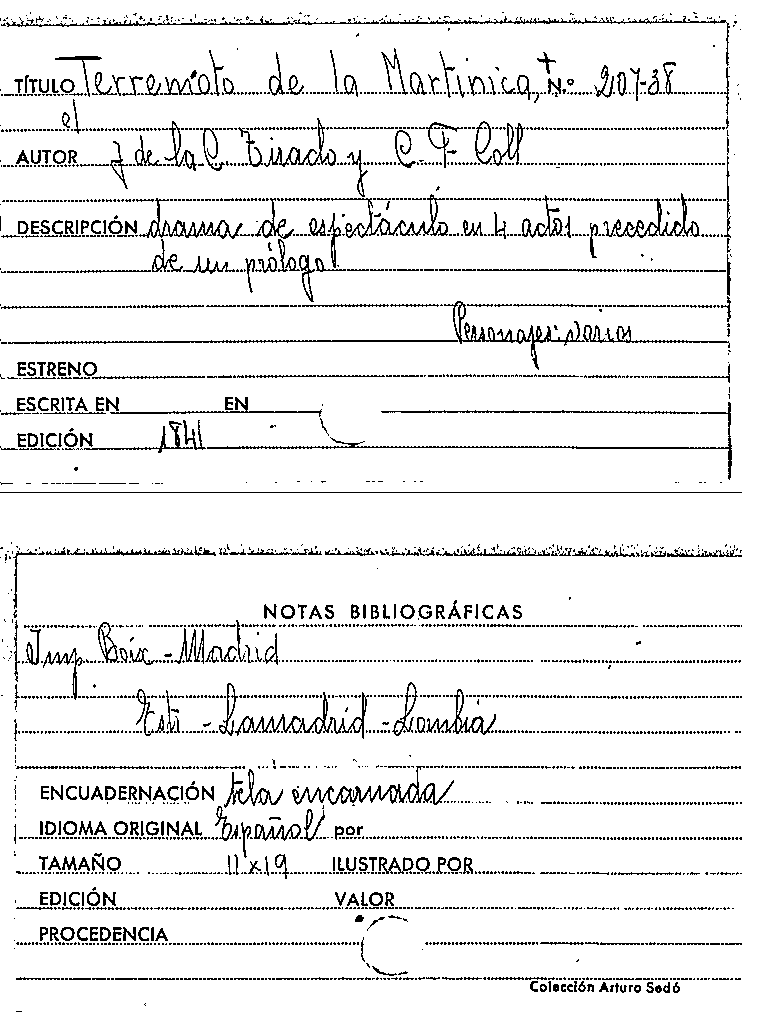 TÍTULO Terremoto de la Martinica, N.º 207-38
el
AUTOR J de la C. Tirado y C. F Coll
DESCRIPCIÓN drama de espectáculo en 4 actos precedido
de un prólogo
Personajes: varios
ESTRENO
ESCRITA EN EN
EDICIÓN 1841
NOTAS BIBLIOGRÁFICAS
Imp Boix - Madrid
Estr - Lamadrid - Lombia
ENCUADERNACIÓN tela encarnada
IDIOMA ORIGINAL Español por
TAMAÑO 11 x 19 ILUSTRADO POR
EDICIÓN VALOR
PROCEDENCIA
Colección Arturo Sedó